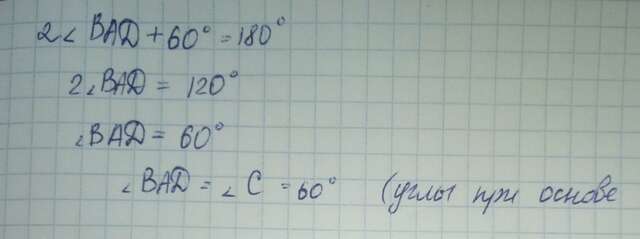 2∠BAD+60°=180°
2∠BAD = 120°
∠BAD = 60°
∠BAD = ∠C = 60° (углы при основе